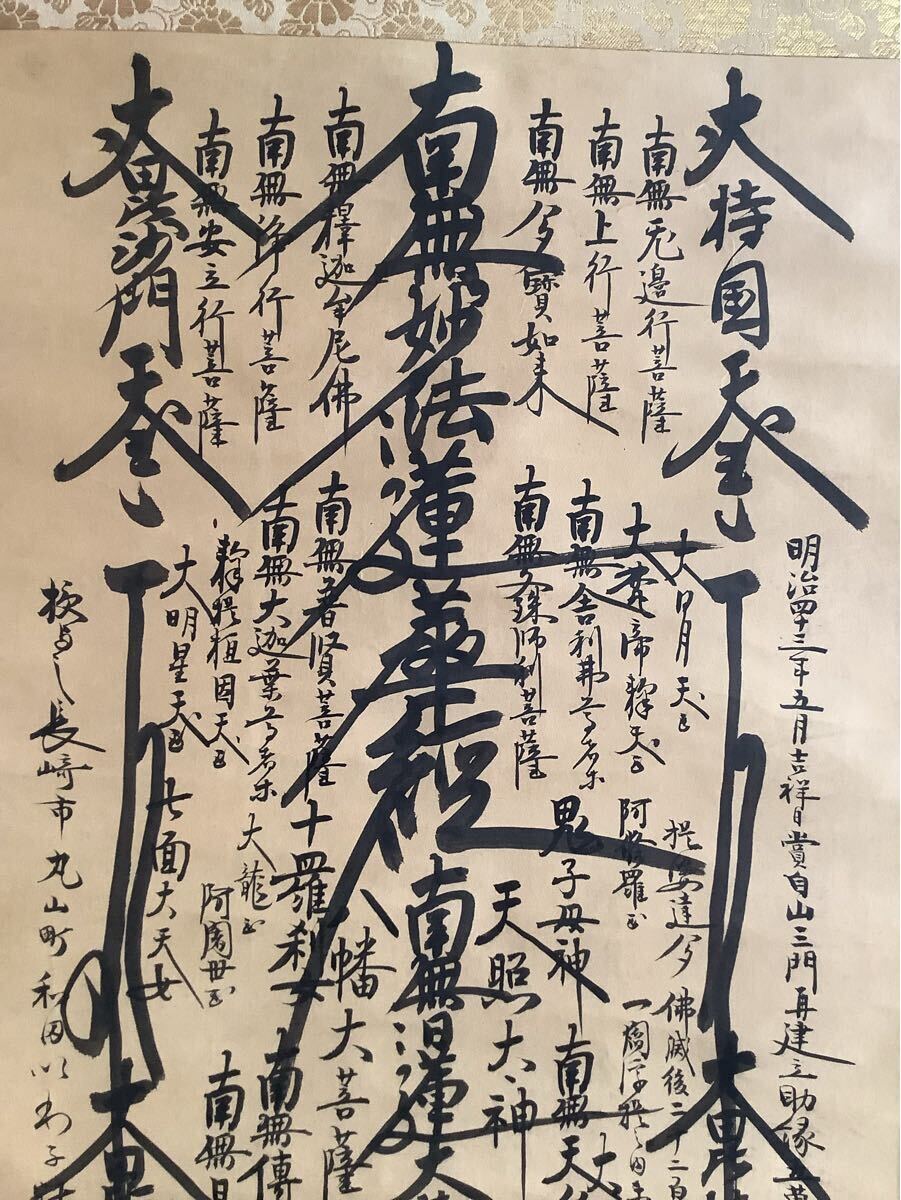 明治四十三年五月吉祥日賞自山三門再建立助縁
大持国天王
南無无邊行菩薩
南無上行菩薩
南無多寳如来
南無妙法蓮華経
南無釋迦牟尼佛
南無浄行菩薩
南無安立行菩薩
大毘沙門天王
大日月天王
大梵帝釋天王
南無舎利弗尊者
南無文殊師利菩薩
南無普賢菩薩
南無大迦葉尊者
釋提桓因天王
大明星天王
提婆達多
阿修羅王
鬼子母神
天照大神
八幡大菩薩
十羅刹女
大龍王
阿闍世王
七面大天女
佛滅後二千二百
一閻浮提之内
南無天
南無日蓮大
南無傳
南無
長崎市丸山町和田